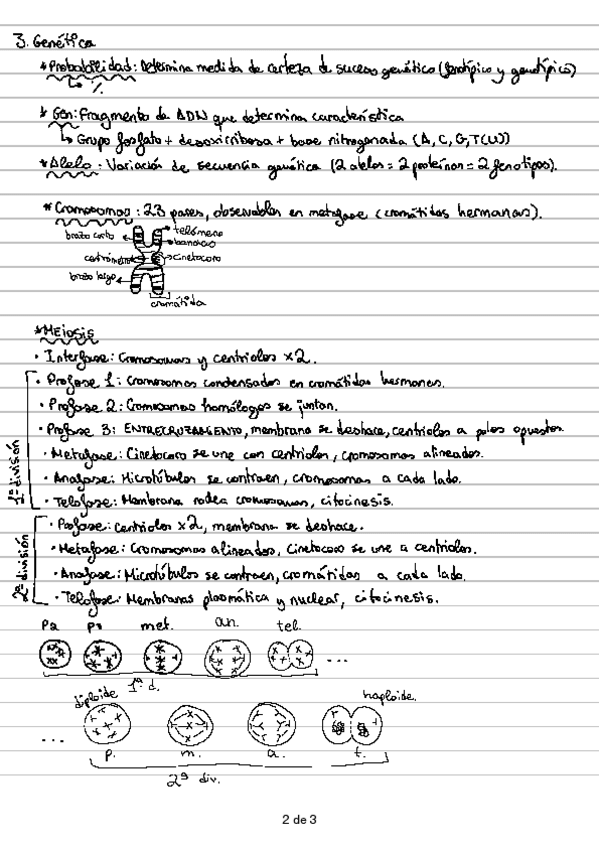 3. Genética
* Probabilidad: Determina medida de certeza de suceso genético (fenotípico y genotípico)
↳ %
* Gen: Fragmento de ADN que determina característica
↳ Grupo fosfato + desoxirribosa + base nitrogenada (A, C, G, T(U))
* Alelo: Variación de secuencia genética (2 alelos = 2 proteínas = 2 fenotipos).
* Cromosomas: 23 pares, observables en metafase (cromátidas hermanas).
brazo corto
telómero
bandas
centrómero
cinetocoro
brazo largo
cromátida
* MEIOSIS
• Interfase: Cromosomas y centriolos x2.
1ª división
• Profase 1: Cromosomas condensados en cromátidas hermanas.
• Profase 2: Cromosomas homólogos se juntan.
• Profase 3: ENTRECRUZAMIENTO, membrana se deshace, centriolos a polos opuestos.
• Metafase: Cinetocoro se une con centriolos, cromosomas alineados.
• Anafase: Microtúbulos se contraen, cromosomas a cada lado.
• Telofase: Membrana rodea cromosomas, citocinesis.
2ª división
• Profase: centriolos x2, membrana se deshace.
• Metafase: Cromosomas alineados, cinetocoro se une a centriolos.
• Anafase: Microtúbulos se contraen, cromátidas a cada lado.
• Telofase: Membranas plasmática y nuclear, citocinesis.
P2 P3 met. an. tel.
...
1ª d.
diploide
haploide.
...
p. m. a. t.
2ª div.
2 de 3